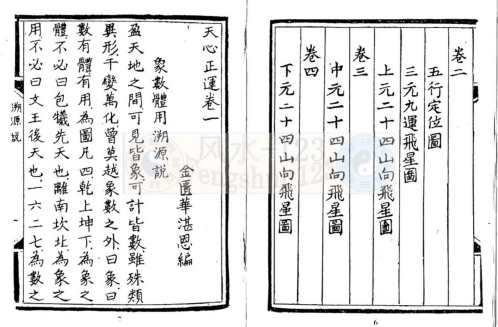 卷二
五行定位圖
三元九運飛星圖
上元二十四山向飛星圖
卷三
中元二十四山向飛星圖
卷四
下元二十四山向飛星圖
天心正運卷一
象數體用溯源說
金匱華湛恩編
盈天地之間可見皆象可計皆數雖殊類
異形千變萬化曾莫越象數之外曰象曰
數有體有用為圖凡四乾上坤下為象之
體不必曰包犧先天也離南坎北為象之
用不必曰文王後天也一六二七為數之
溯源說
风水-123
fengshui-123